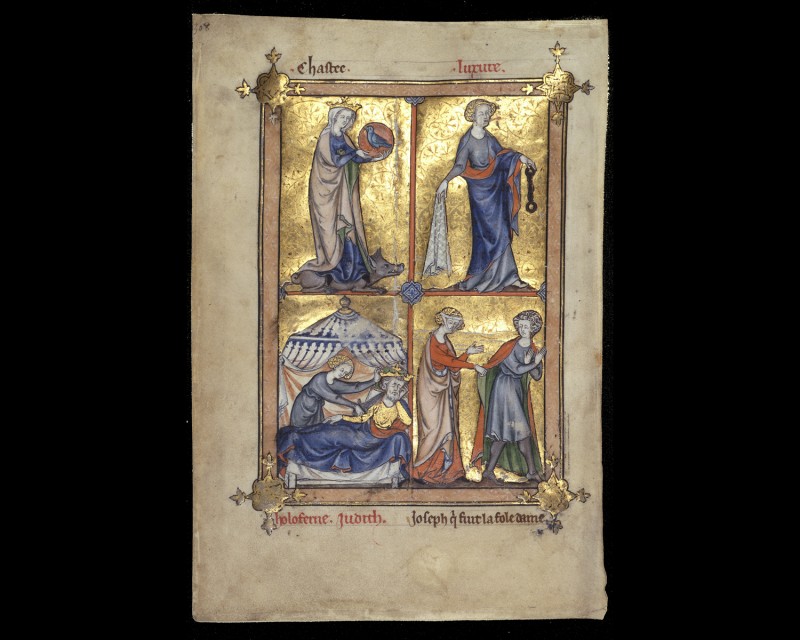 ·Chastee· ·luxure·
holoferne. Judith. Joseph q̄ fuit la fole dame